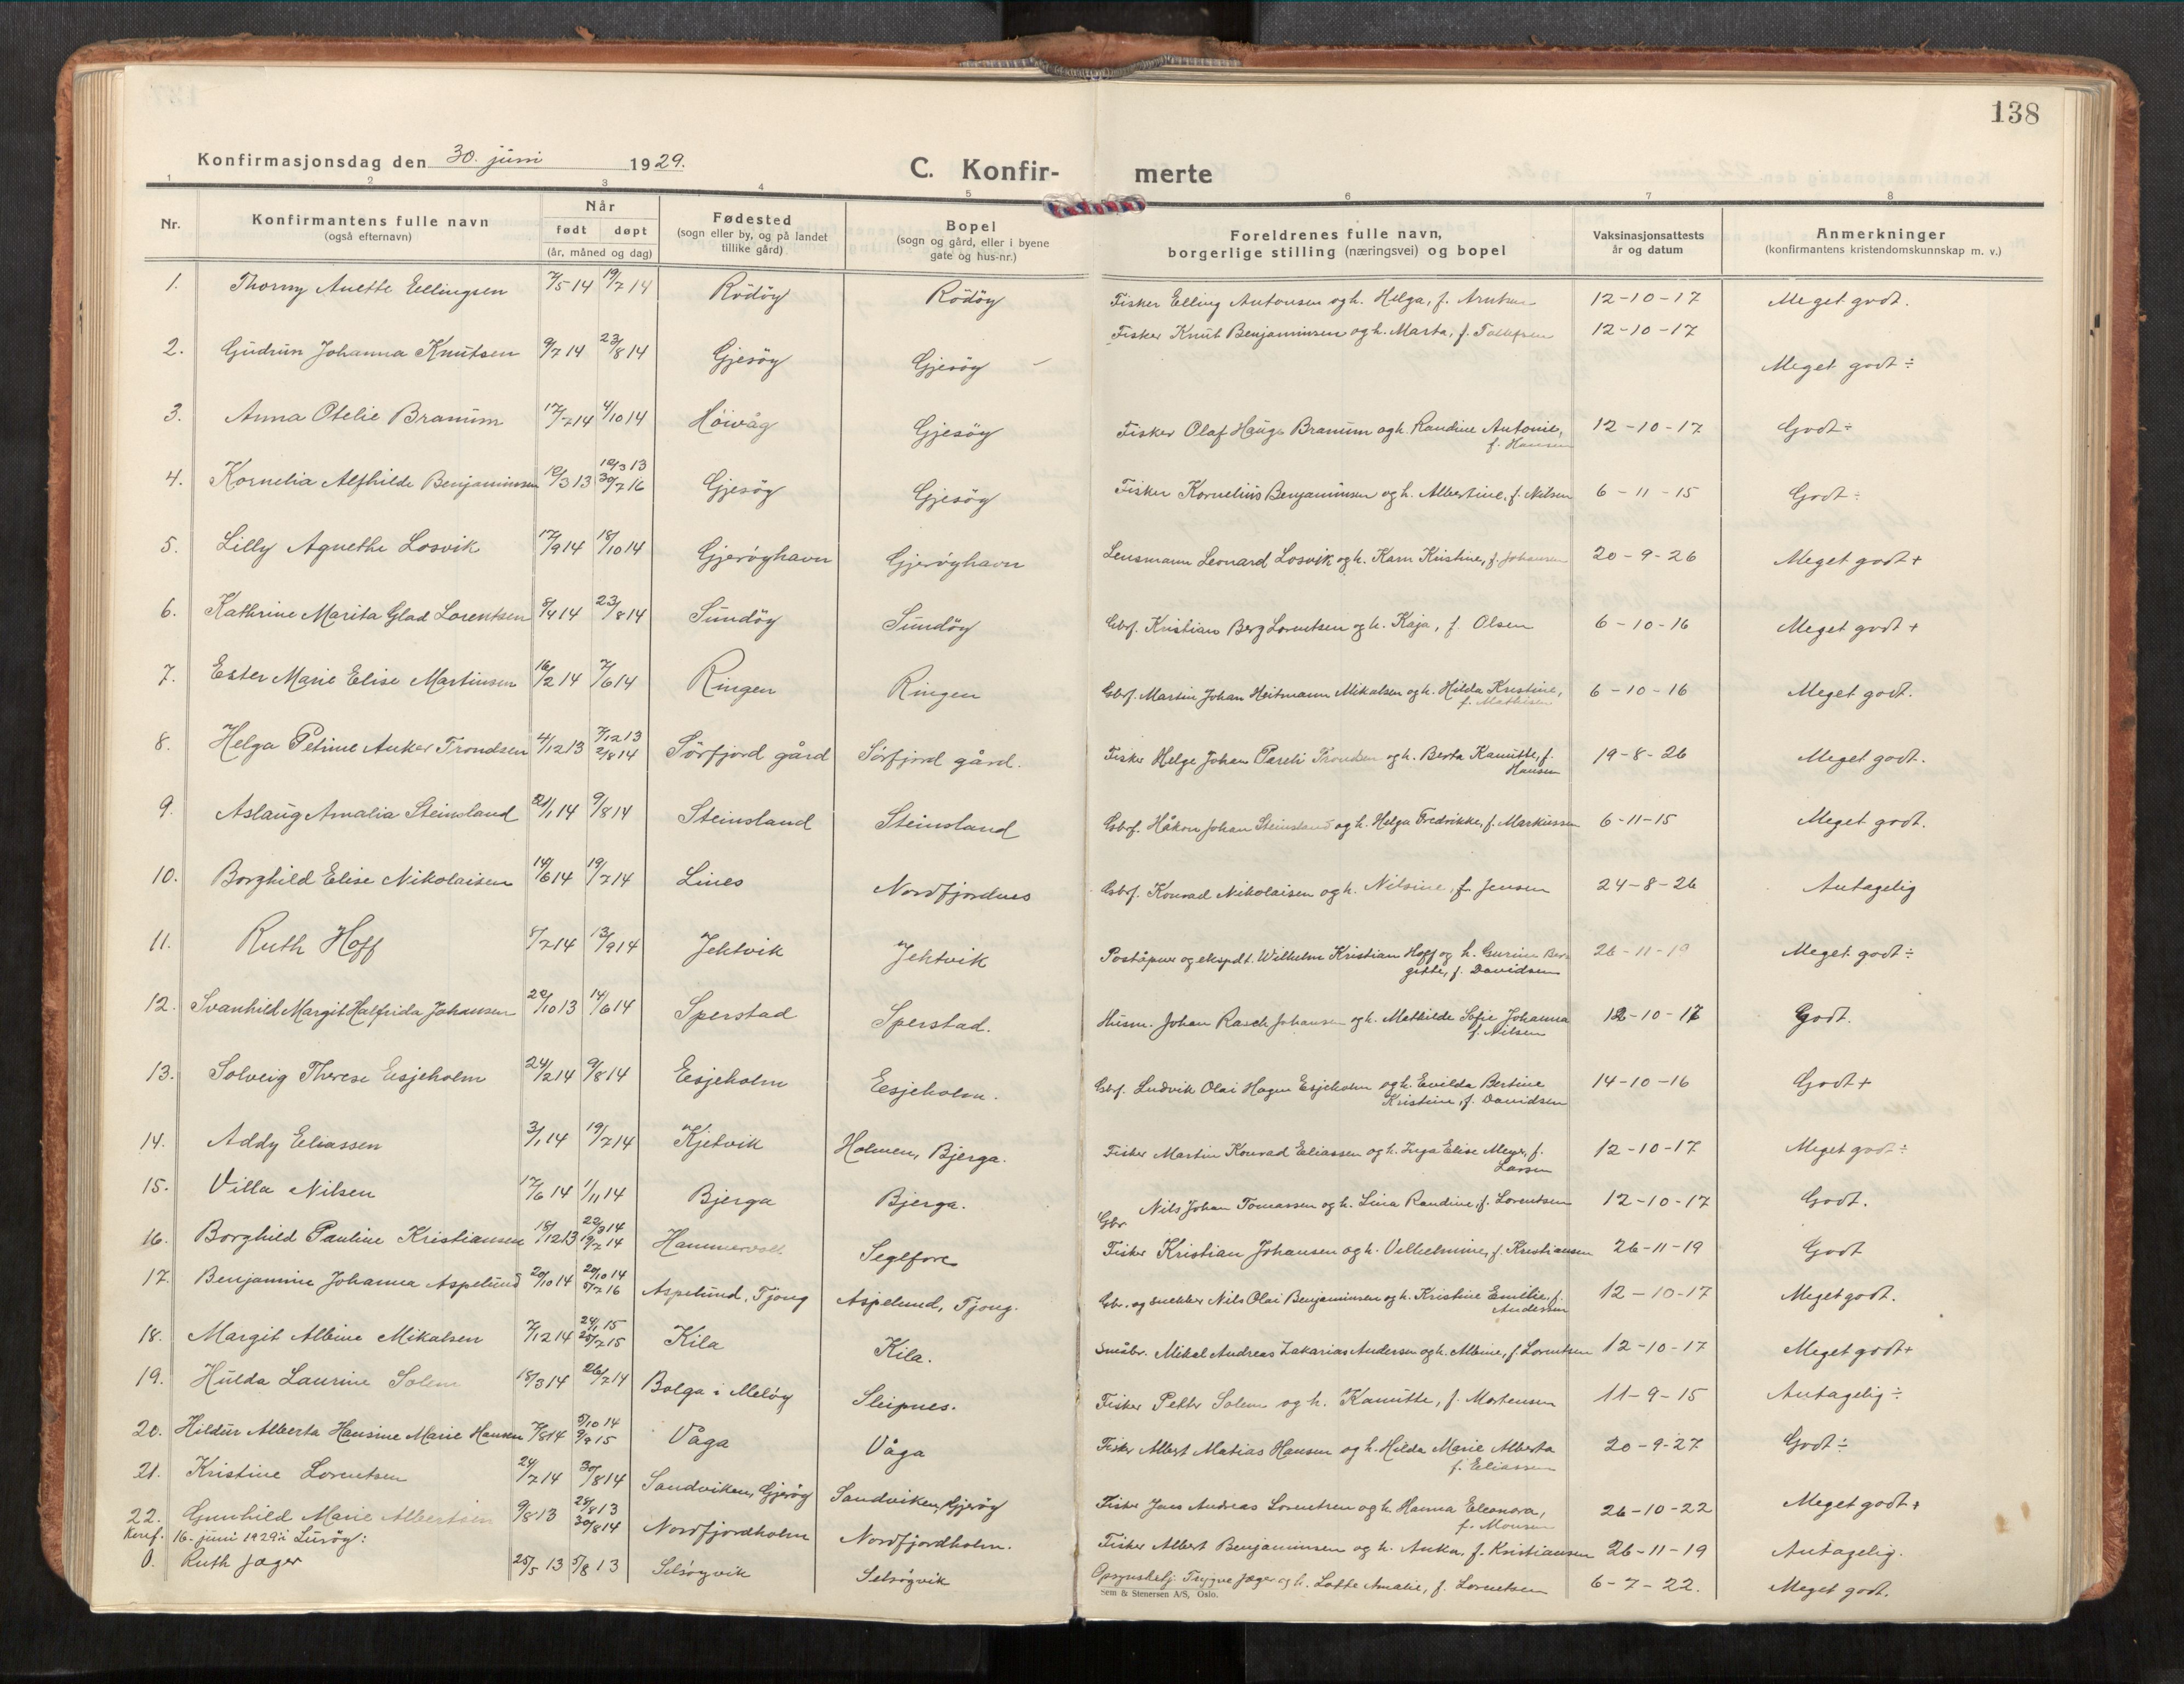 138
Konfirmasjonsdag den 30. juni 1929.
C. Konfir- merte
1 2 3 4 5 6 7 8
Nr. Konfirmantens fulle navn (også efternavn) Når født døpt (år, måned og dag) Fødested (sogn eller by, og på landet tillike gård) Bopel (sogn og gård, eller i byene gate og hus-nr.) Foreldrenes fulle navn, borgerlige stilling (næringsvei) og bopel Vaksinasjonsattests år og datum Anmerkninger (konfirmantens kristendomskunnskap m. v.)
1. Thorny Anette Ellingsen 7/5 14 19/7 14 Rödöy Rödöy Fisker Elling Antonsen og h. Helga, f. 12-10-17 Meget godt.
2. Gudrun Johanna Knutsen 9/7 14 23/8 14 Gjesöy Gjesöy Fisker Knut Benjaminsen og h. Marta, f. Tollefsen 12-10-17 Meget godt ÷
3. Anna Otelie Branum 17/7 14 4/10 14 Höivåg Gjesöy Fisker Olaf Hauge Branum og h. Randine Antonie, f. Hansen 12-10-17 Godt ÷
4. Kornelia Alfhilde Benjaminsen 10/3 13 10/3 13 30/7 16 Gjesöy Gjesöy Fisker Kornelius Benjaminsen og h. Albertine, f. Nilsen 6-11-15 Godt ÷
5. Lilly Agnethe Losvik 17/9 14 18/10 14 Gjeröyhavn Gjeröyhavn Lensmann Leonard Losvik og h. Karn Kristine, f. Johansen 20-9-26 Meget godt +
6. Kathrine Marita Glad Lorentsen 8/4 14 23/8 14 Sundöy Sundöy Gbrf. Kristian Berg Lorentsen og h. Kaja, f. Olsen 6-10-16 Meget godt +
7. Ester Marie Elise Martinsen 16/2 14 7/6 14 Ringen Ringen Gbrf. Martin Johan Heitmann Mikalsen og h. Hilda Kristine, f. Mathisen 6-10-16 Meget godt.
8. Helga Petrine Anker Trondsen 4/12 13 7/12 13 2/8 14 Sörfjord gård Sörfjord gård. Fisker Helge Johan Pareli Trondsen og h. Berta Kanutte, f. Hansen 19-8-26 Meget godt.
9. Aslaug Amalia Steinsland 21/1 14 9/8 14 Steinsland Steinsland Gbrf. Håkon Johan Steinsland og h. Helga Fredrikke, f. Markussen 6-11-15 Meget godt.
10. Borghild Elise Nikolaisen 14/6 14 19/7 14 Lines Nordfjordnes Gbrf. Konrad Nikolaisen og h. Nilsine, f. Jensen 24-8-26 Antagelig
11. Ruth Hoff 8/7 14 13/9 14 Jektvik Jektvik Poståpner og ekspdt. Wilhelm Kristian Hoff og h. Gurine Bergitte, f. Davidsen 26-11-19 Meget godt ÷
12. Svanhild Margit Halfrida Johansen 20/10 13 14/6 14 Sperstad Sperstad. Husm. Johan Rasch Johansen og h. Mathilde Sofie Johanna f. Nilsen 12-10-17 Godt.
13. Solveig Therese Esjeholm 24/2 14 9/8 14 Eesjeholm Eesjeholm. Gbf. Ludvik Olai Hagen Esjeholm og h. Evilda Bertine Kristine, f. Davidsen 14-10-16 Godt +
14. Addy Eliassen 3/1 14 19/7 14 Kjetvik Holmen, Bjerga. Fisker Martin Konrad Eliassen og h. Inga Elise Meyer, f. Larsen 12-10-17 Meget godt ÷
15. Villa Nilsen 17/6 14 1/11 14 Bjerga Bjerga. Gbr. Nils Johan Tomassen og h. Lina Randine, f. Lorentsen 12-10-17 Godt.
16. Borghild Pauline Kristiansen 18/12 13 22/3 14 19/7 14 Hammervoll Seglfore Fisker Kristian Johansen og h. Vilhelmine, f. Kristiansen 26-11-19 Godt
17. Benjamine Johanna Aspelund 20/10 14 20/10 14 5/7 16 Aspelund, Tjong Aspelund, Tjong. Gbr. og snekker Nils Olai Benjaminsen og h. Kristine Emilie, f. Andersen 12-10-17 Meget godt.
18. Margit Albine Mikalsen 7/12 14 24/1 15 25/7 15 Kila Kila. Småbr. Mikal Andreas Zakarias Andersen og h. Albine, f. Lorentsen 12-10-17 Meget godt +
19. Hulda Laurine Solem 18/3 14 26/7 14 Bolga i Melöy Sleipnes. Fisker Petter Solem og h. Kanutte, f. Mortensen 11-9-15 Antagelig ÷
20. Hildur Alberta Hansine Marie Hansen 7/8 14 5/10 14 9/9 15 Våga Våga Fisker Albert Matias Hansen og h. Hilda Marie Alberta f. Eliassen 20-9-27 Godt ÷
21. Kristine Lorentsen 24/7 14 30/8 14 Sandviken, Gjeröy Sandviken, Gjeröy Fisker Jens Andreas Lorentsen og h. Hanna Eleonora, f. Monsen 26-10-22 Meget godt +
22. Gunhild Marie Albertsen 9/8 13 28/8 13 30/8 14 Nordfjordholm Nordfjordholm. Fisker Albert Benjaminsen og h. Anka, f. Kristiansen 26-11-19 Antagelig.
Konf. 16. juni 1929 i Luröy:
0. Ruth Jæger 25/5 13 3/8 13 Selsöyvik Selsöyvik Opsynsbetj. Trygve Jæger og h. Lotte Amalie, f. Lorentsen 6-7-22. Meget godt.
Sem & Stenersen A/S, Oslo.